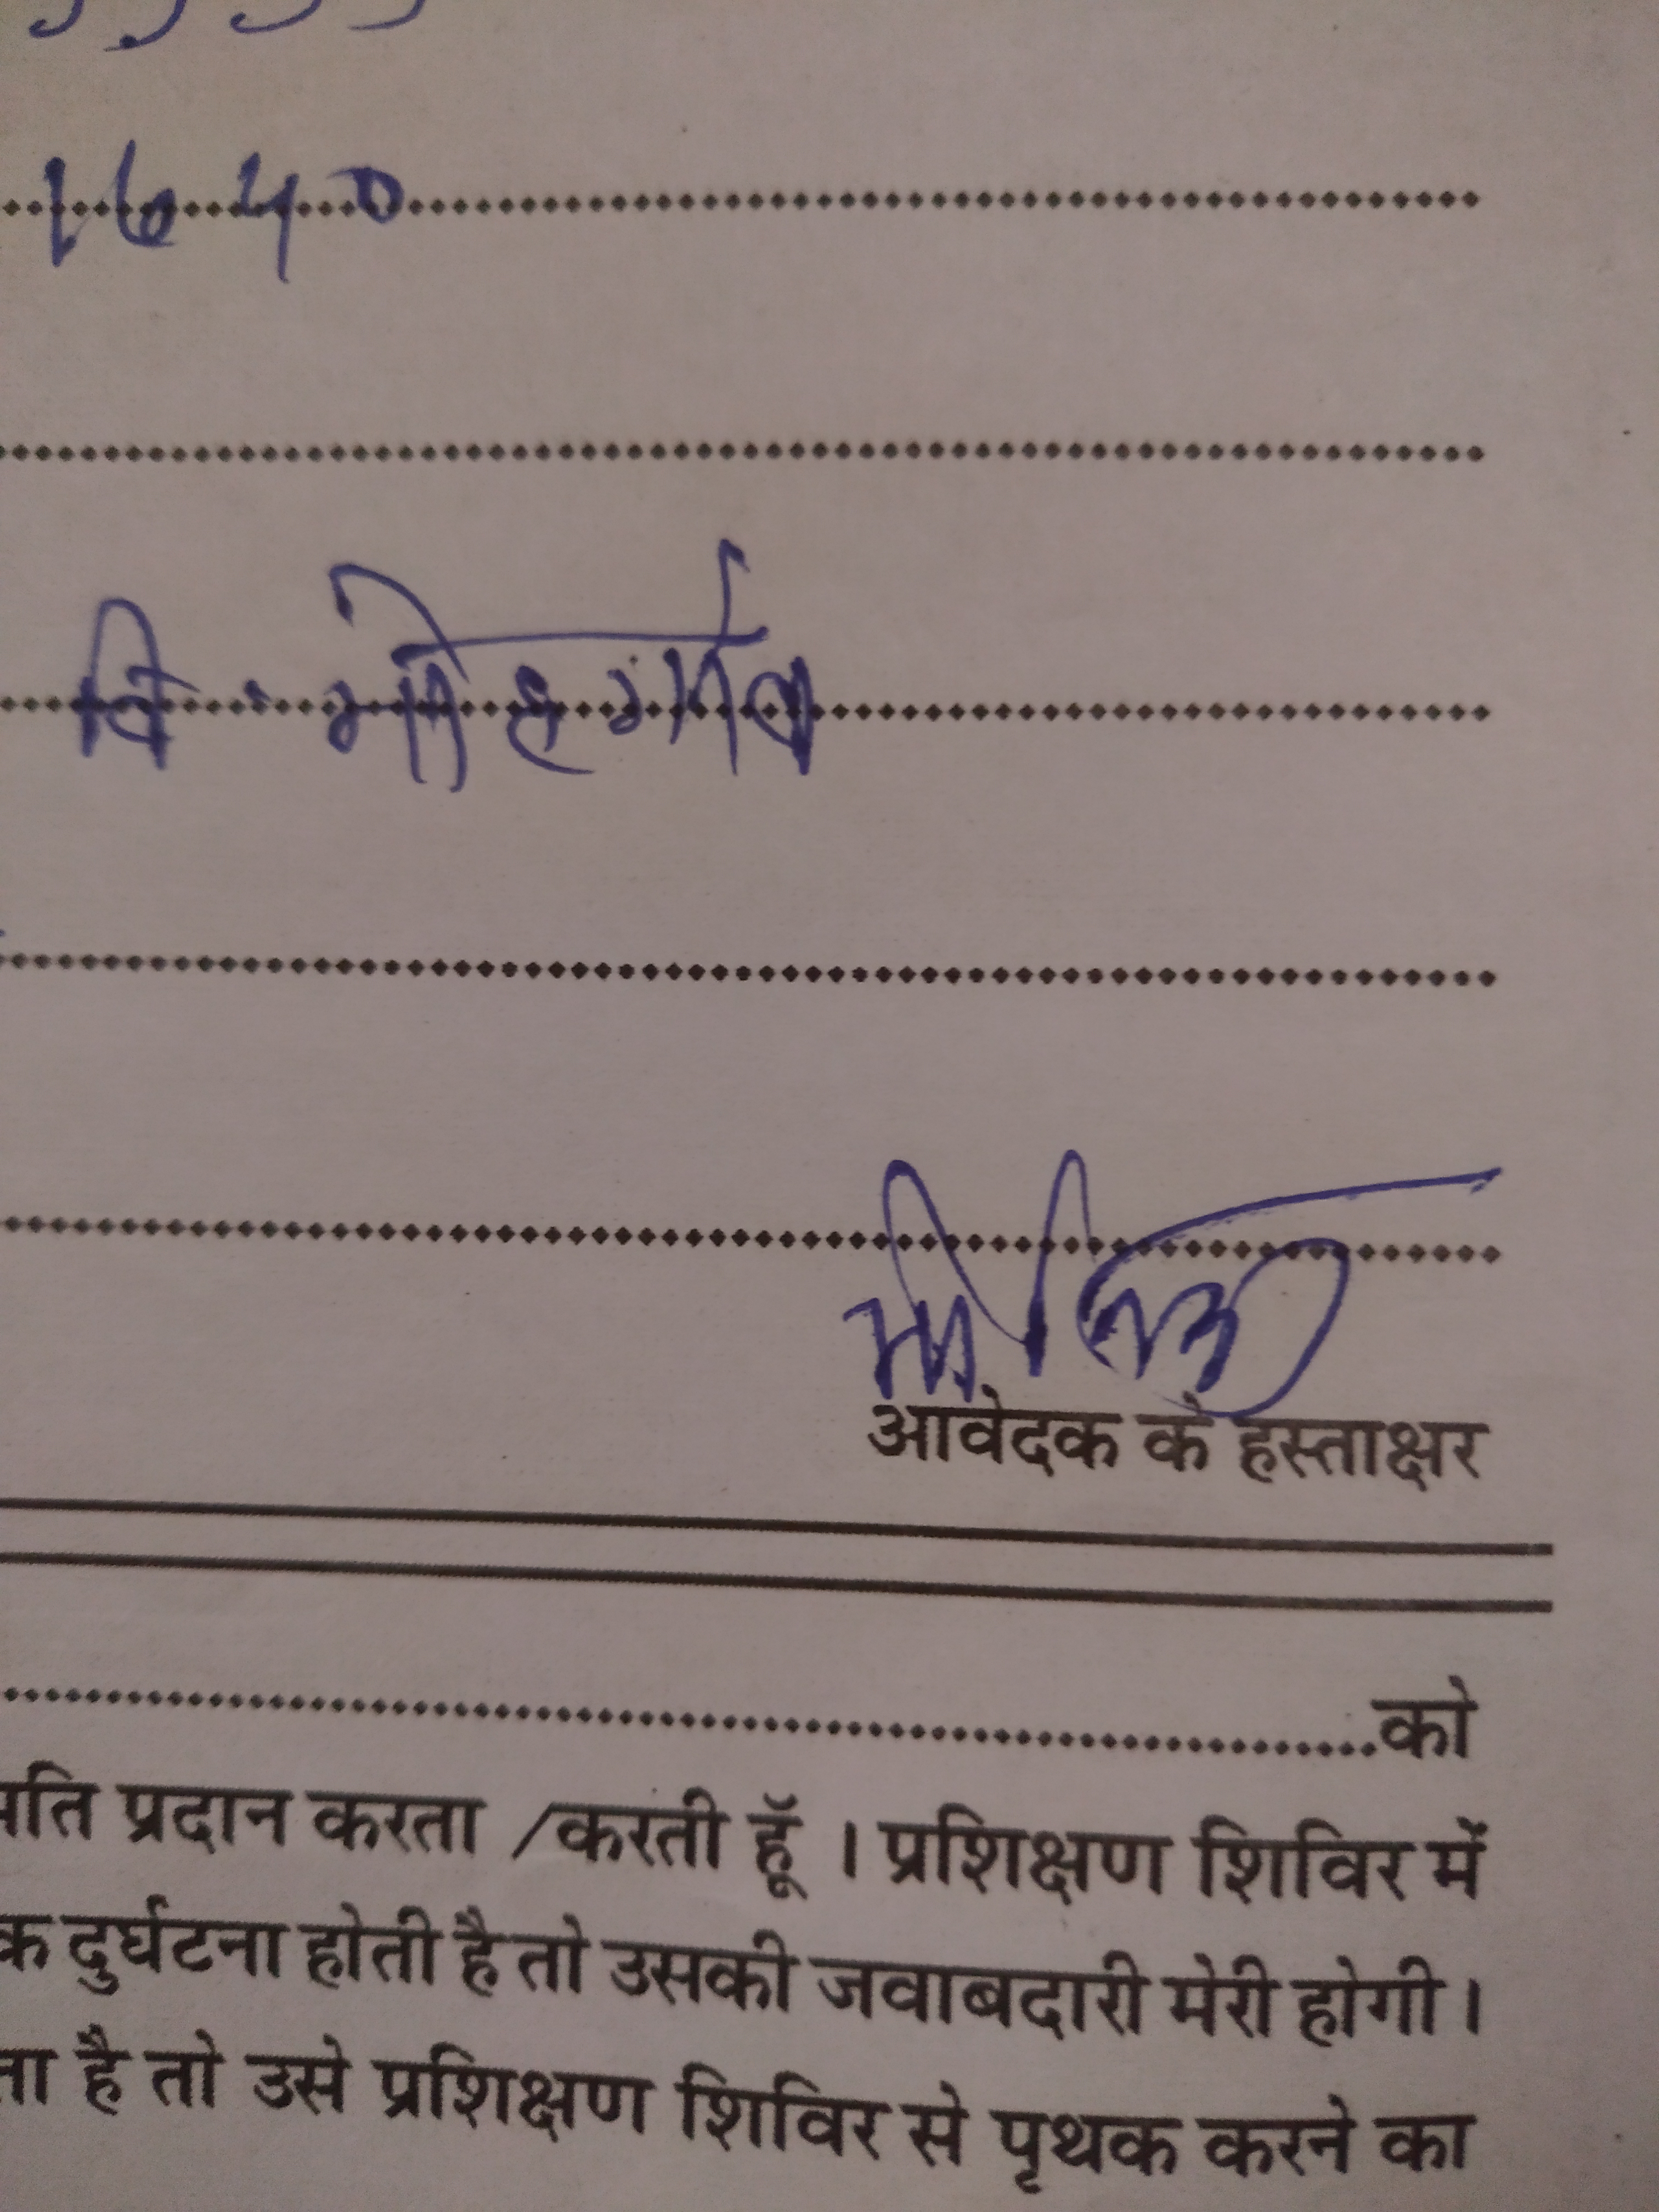 1640
वि. मोहगाँव
आवेदक के हस्ताक्षर
को
मति प्रदान करता /करती हूँ । प्रशिक्षण शिविर में
क दुर्घटना होती है तो उसकी जवाबदारी मेरी होगी।
ता है तो उसे प्रशिक्षण शिविर से पृथक करने का